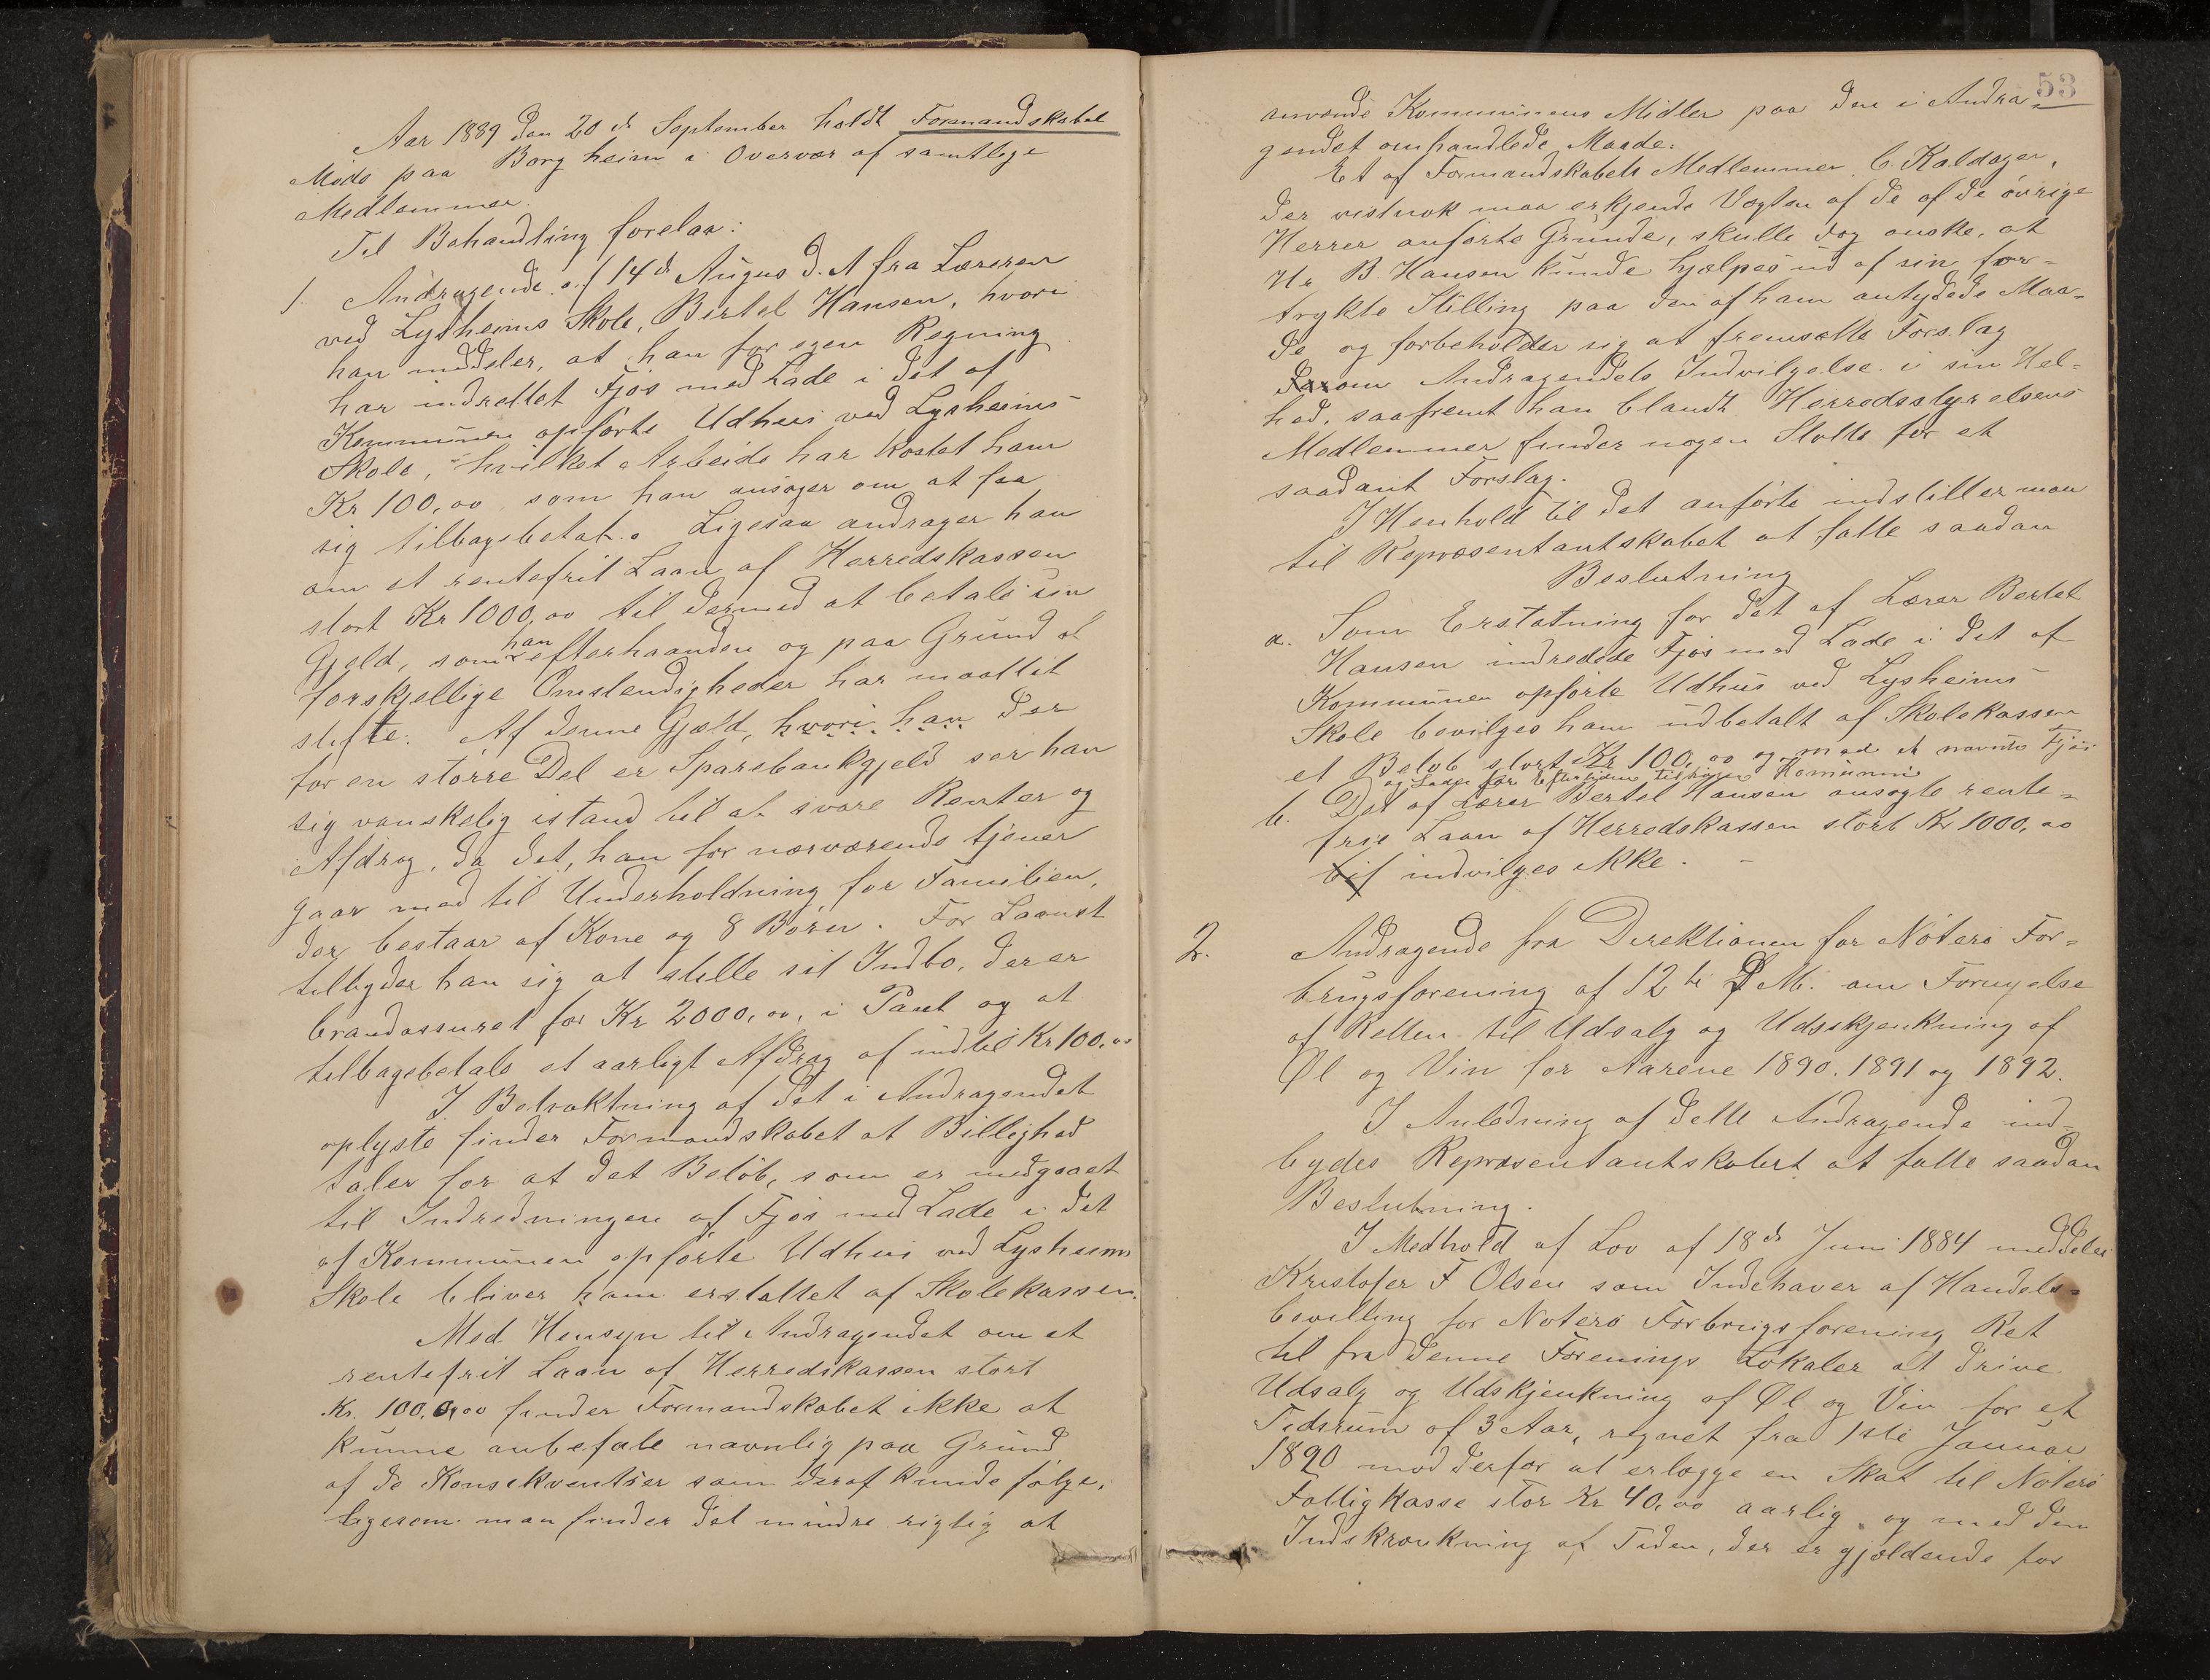 Aar 1889 den 20de September holdt Formandskabet
Møde paa Borgheim i Overvær af samtlige
Medlemmer.
Til Behandling forelaa:
1. Andragende af 14de Augus d. A fra Læreren
ved Lysheims Skole, Bertel Hansen, hvori
han meddeler, at han for egen Regning
har indrettet Fjøs med Lade i det af
Kommunen opførte Udhus ved Lysheims
Skole, hvilket Arbeide har kostet ham
Kr 100,00 som han ansøger om at faa
sig tilbagebetalt. Ligesaa andrager han
om et rentefrit Laan af Herredskassen
stort Kr 1000,00 til dermed at betale sin
Gjeld, som han efterhaanden og paa Grund af
forskjellige Omstendigheder har maattet
stifte. Af denne Gjæld, hvori han der
for en større Del er Sparebankgjeld ser han
sig vanskelig istand til at svare Renter og
Afdrag, da det, han for nærværende tjener
gaar med til Underholdning for Familien,
der bestaar af Kone og 8 Børn. For Laanet
tilbyder han sig at stille sit Indbo, der er
brandassuret for Kr 2000,00, i Pant og at
tilbagebetale et aarligt Afdrag af indtil Kr 100,00
I Betraktning af det i Andragendet
oplyste finder Formandskabet at Billighed
taler for at det Beløb, som er medgaaet
til Indredningen af Fjøs med Lade i det
af Kommunen opførte Udhus ved Lysheims
Skole bliver ham erstattet af Skolekassen.
Med Hensyn til Andragendet om et
rentefrit Laan af Herredskassen stort
Kr. 100,0,00 finder Formandskabet ikke at
kunne anbefale navnlig paa Grund
af de Konsekventser som deraf kunde følge,
ligesom man finder det mindre rigtig at
53
anvende Kommunens Midler paa den i Andra-
gendet omhandlede Maade.
Et af Formandskabets Medlemmer C. Kaldager,
der vistnok maa erkjende Vegten af de af de øvrige
Herrer anførte Grunde, skulle dog ønske, at
Hr B. Hansen kunde hjælpes ud af sin for-
trykte Stilling paa den af ham antydede Maa-
de og forbeholder sig at fremsætte Forslag
om Andragendets Indvilgelse i sin Hel-
hed, saafremt han blandt Herredsstyrelsens
Medlemmer finder nogen Støtte for et
saadant Forslag.
I Henhold til det anførte indstiller man
til Repræsentantskabet at fatte saadan
Beslutning
a. Som Erstatning for det af Lærer Bertel
Hansen indredede Fjøs med Lade i det af
Kommunen opførte Udhus ved Lysheims
Skole bevilges ham udbetalt af Skolekassen
et Beløb stort Kr 100,00 og mod at nævnte Fjøs
og Lade for Eftertiden tilhører Kommunen
b. Det af Lærer Bertel Hansen ansøgte rente-
frie Laan af Herredskassen stort Kr 1000,00
indvilges ikke.
2. Andragende fra Direktionen for Nøterø For-
brugsforening af 12te d M. om Fornyelse
af Retten til Udsalg og Udskjenkning af
Øl og Vin for Aarene 1890. 1891 og 1892.
I Anledning af dette Andragende ind-
bydes Repræsentantskabet at fatte saadan
Beslutning.
I Medhold af Lov af 18de Juni 1884 meddeles
Kristofer F Olsen som Indehaver af Handels-
bevilling for Nøterø Forbrugsforening Ret
til fra denne Forenings Lokaler at drive
Udsalg og Udskjenkning af Øl og Vin for et
Tidsrum af 3 Aar, regnet fra 1ste Januar
1890 mod derfor at erlægge en Skat til Nøterø
Fattigkasse stor Kr 40,00 aarlig og med den
Indskrænkning af Tiden, der er gjældende for